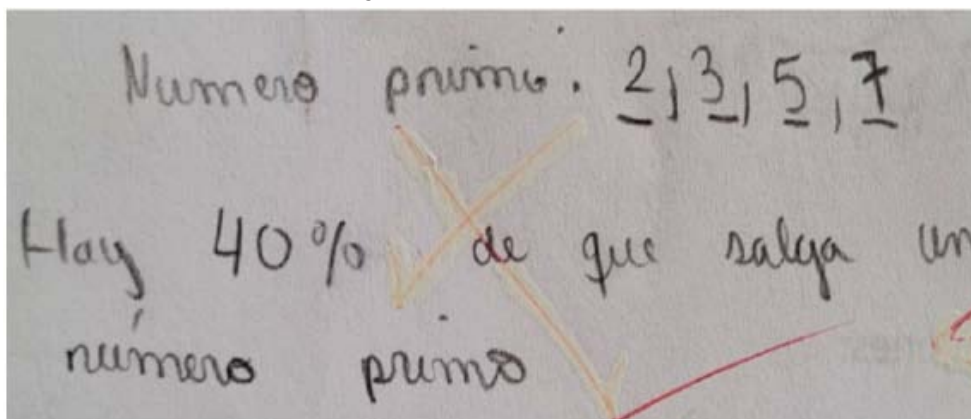 Numero primo. 2, 3, 5, 7
Hay 40% de que salga un
número primo